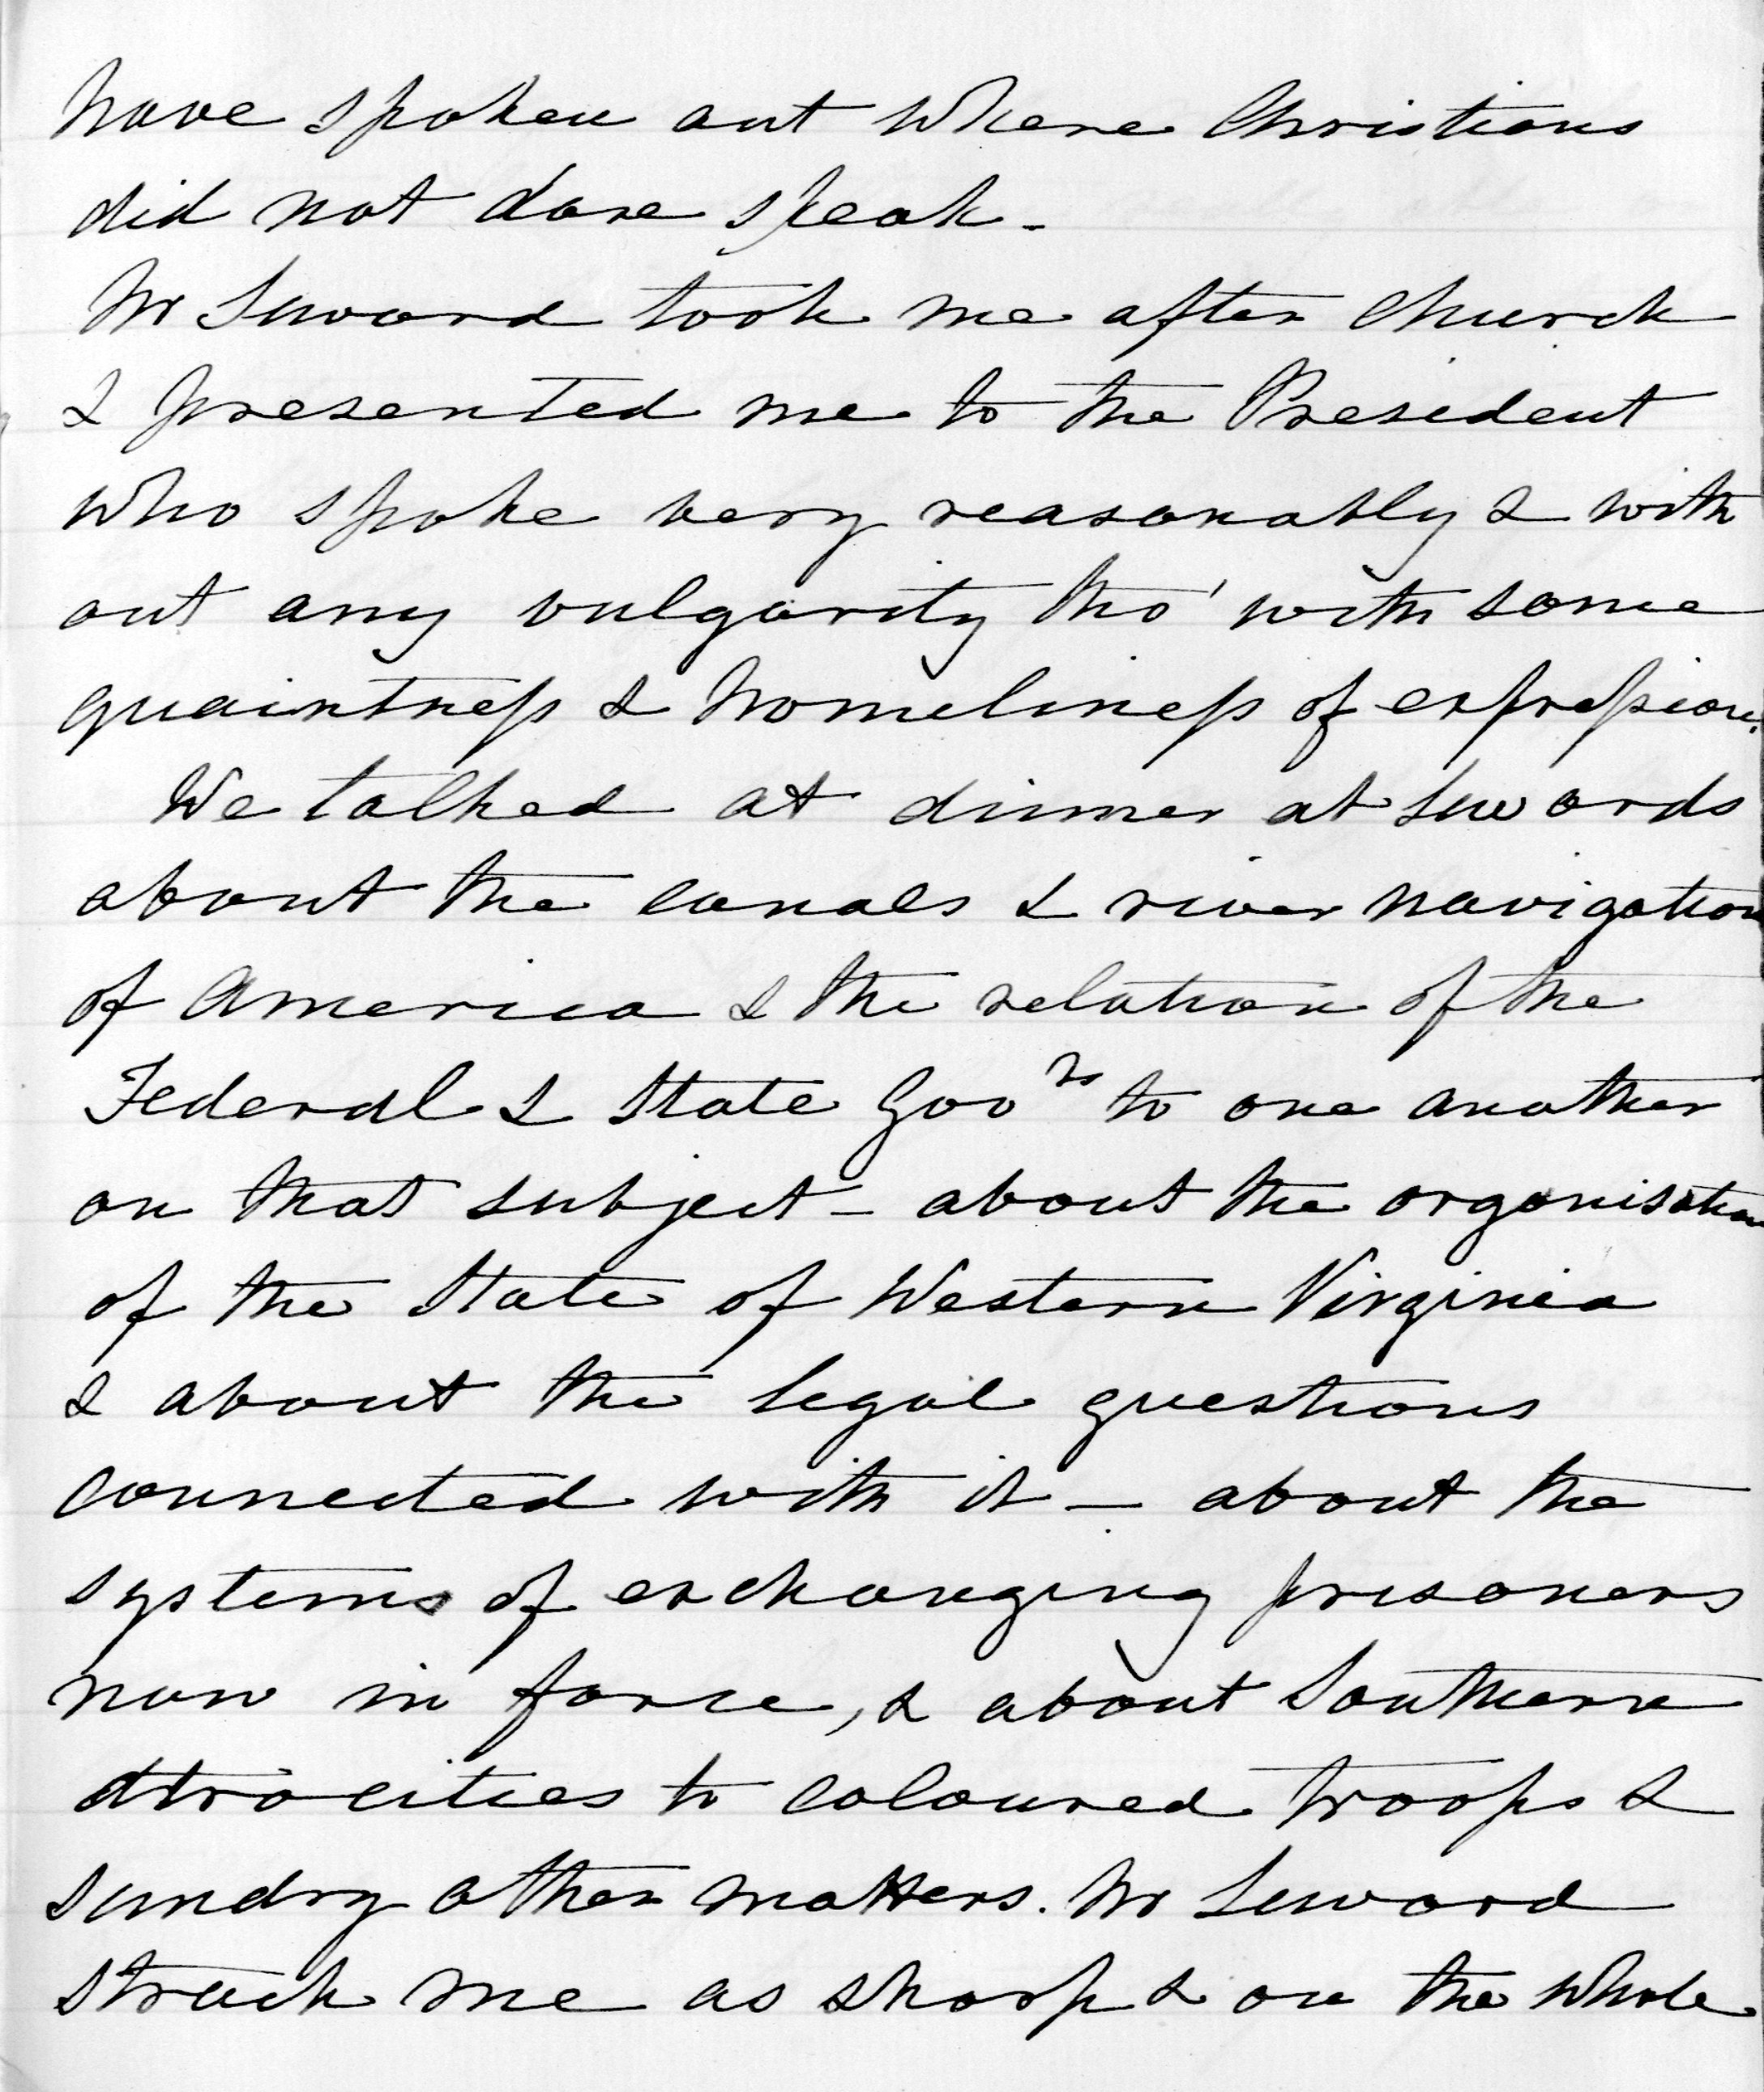 have spoken out where Christians
did not dare speak -
Mr Seward took me after church
& presented me to the President
who spoke very reasonably & with
out any vulgarity tho' with some
quaintness & homeliness of expression.
We talked at dinner at Sewards
about the canals & river navigation
of America & the relation of the
Federal & State Govts to one another
on that subject - about the organisation
of the State of Western Virginia
& about the legal questions
connected with it - about the
systems of exchanging prisoners
now in force, & about Southern
atrocities to coloured troops &
sundry other matters. Mr Seward
struck me as sharp & on the whole